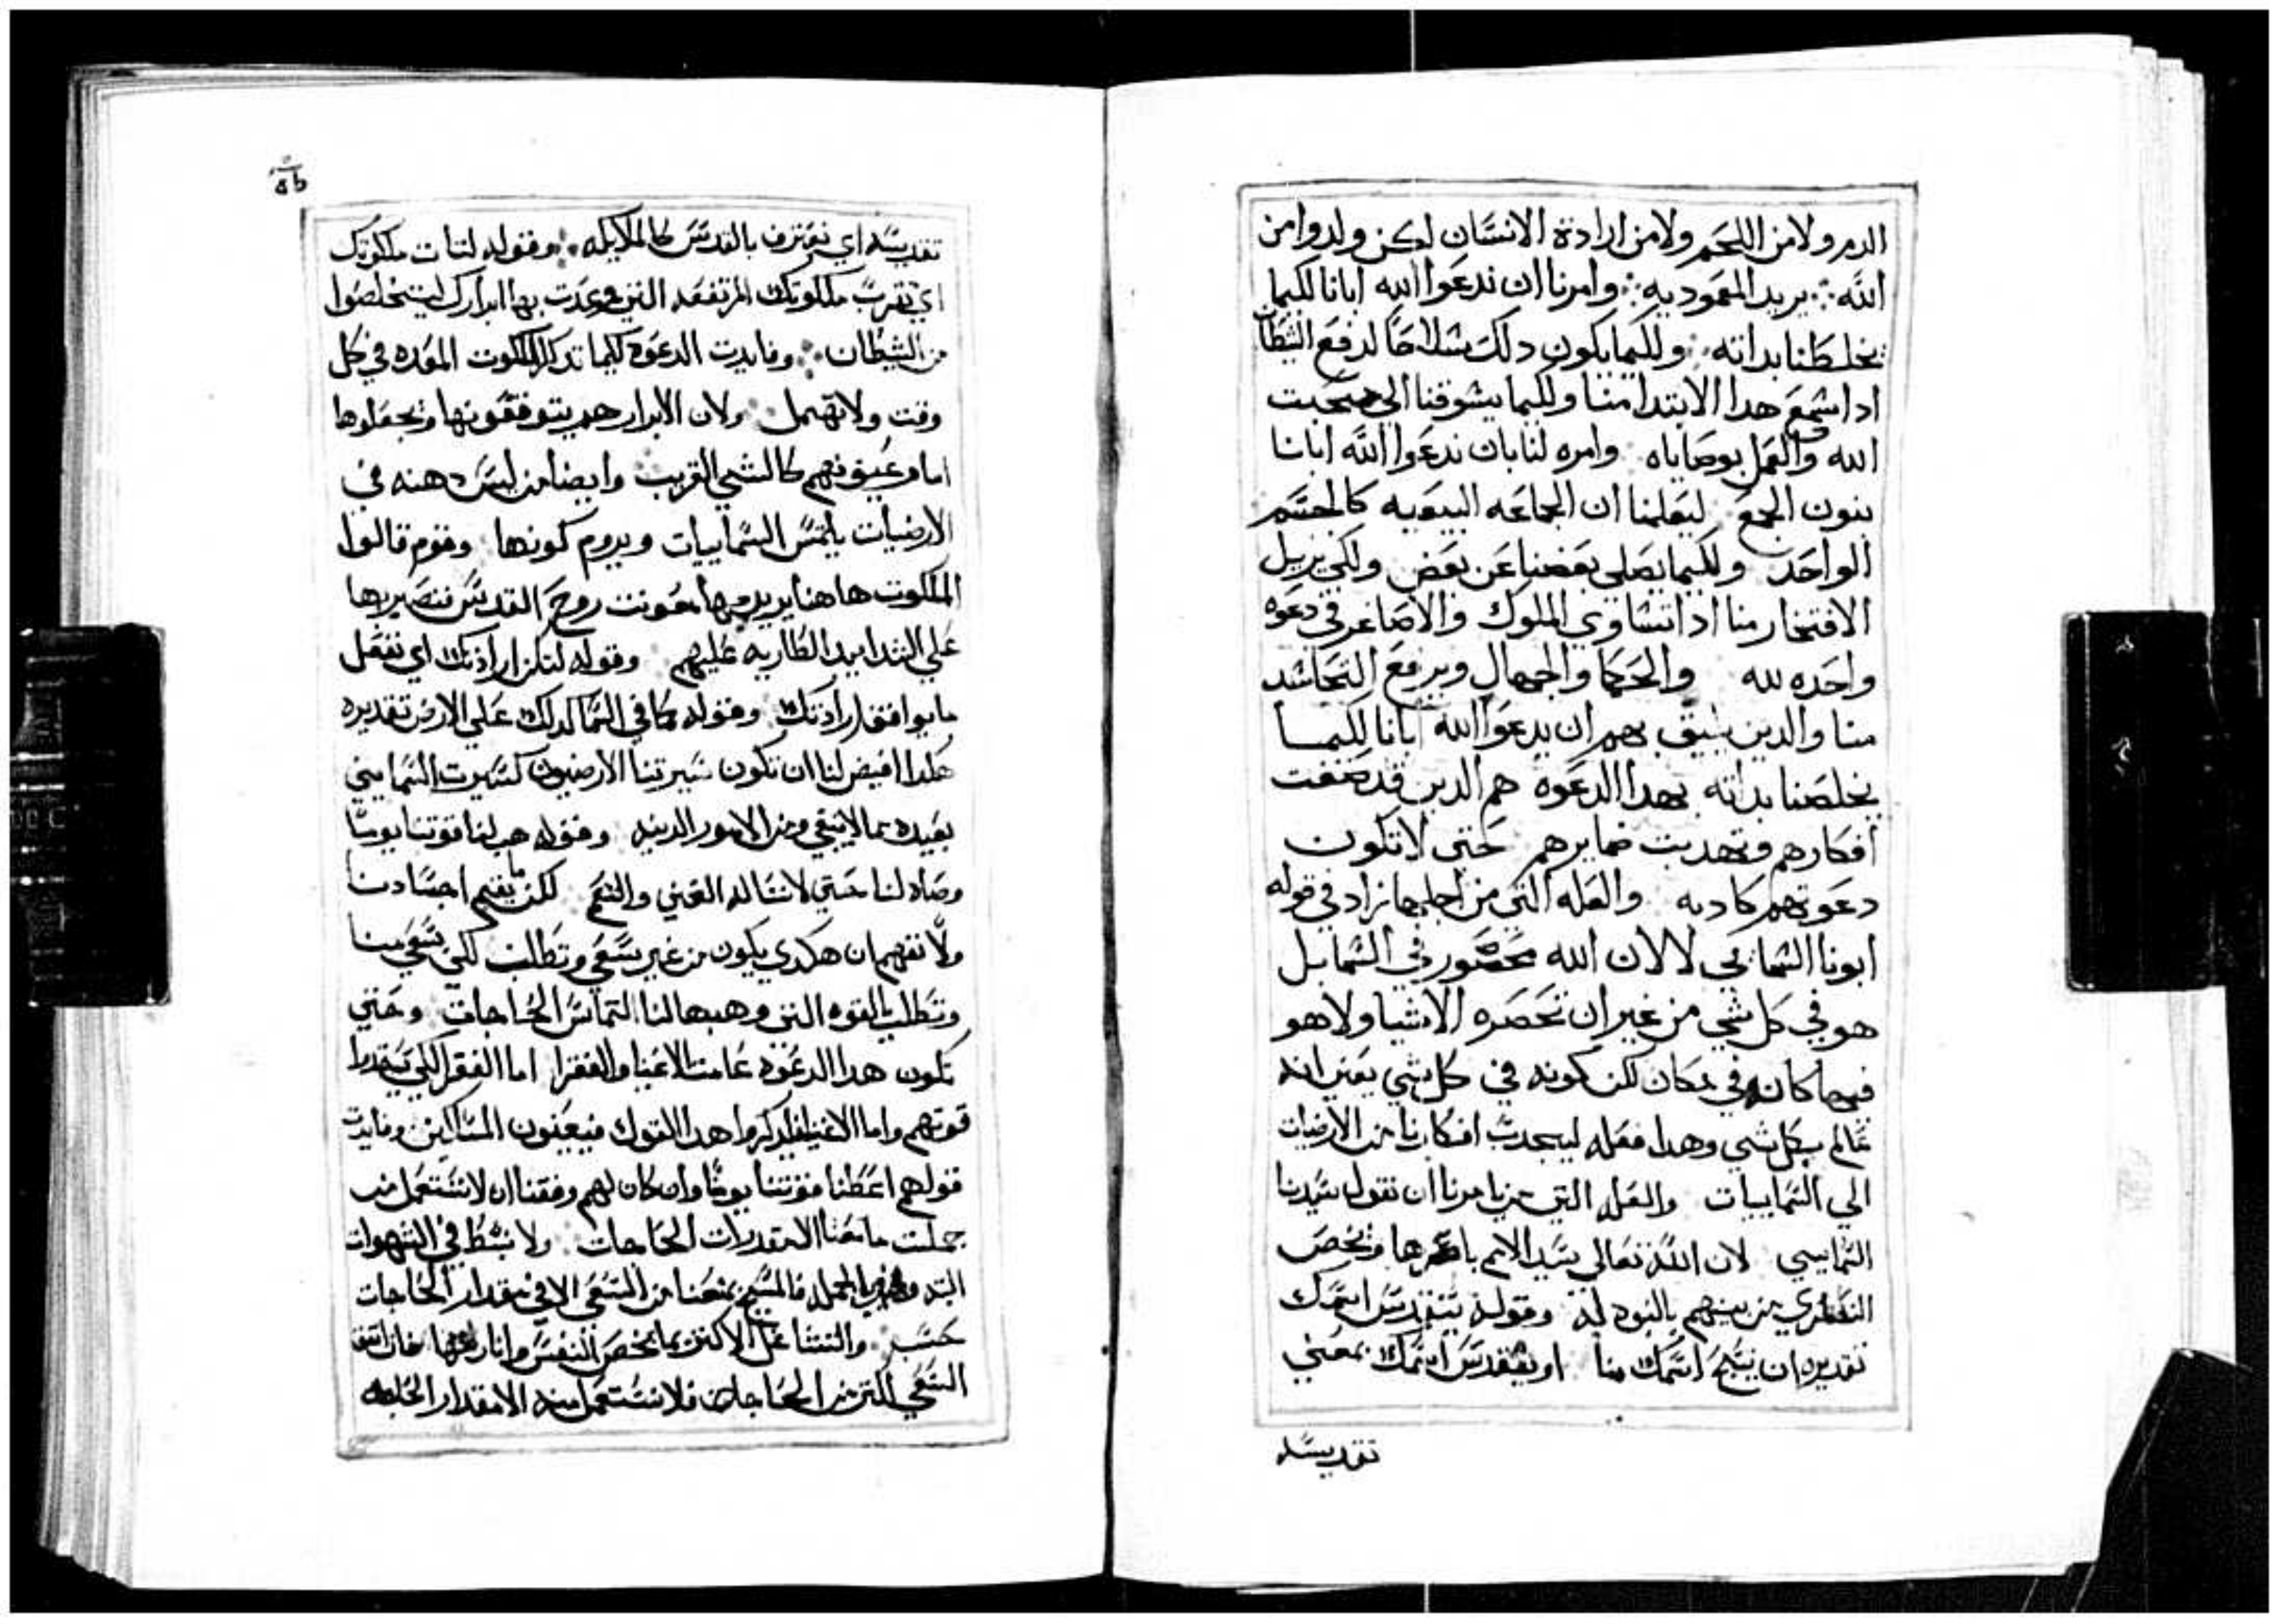 الدم ولا من اللحم ولا من ارادة الانسان لكن ولدوا من
الله ∴ يريد المعموديه ∴ وامرنا ان ندعوا الله ابانا لكيما
يخلطنا بداته ∴ ولكيما يكون دلك سلاحا لدفع الشطان
ادا سمع هدا الابتدا منا ولكيما يشوقنا الي محبت
الله والعمل بوصاياه وامره لنا بان ندعوا الله ابانا
بنون الجمع ليعلمنا ان الجماعه البيعيه كالجسم
الواحد ولكيما يصلي بعضنا عن بعض ولكي يزيل
الافتخار منا ادا تساوي الملوك والاصاغر في دعوه
واحده لله والحكما والجهال ويرفع التحاسد
منا والدين يليق بهم ان يدعوا الله ابانا لكيما
يخلصنا بداته بهدا الدعوه هم الدين قد صفت
افكارهم وتهدبت ضمايرهم حتي لا تكون
دعوتهم كادبه والعله التي من اجلها زاد في قوله
ابونا السمايي لا لان الله محصور في السما بل
هو في كل شي من غير ان تحصره الاشيا ولا هو
فيها كانه في مكان لكن كونه في كل شي يعني انه
عالم بكل شي وهدا فعله ليجدب افكارنا من الارضيات
الي السماييات والعله التي من يامرنا ان نقول سيدنا
السمايي لان الله تعالي سيد الامم باسرها ويخص
النصاري من بينهم بالنوه له وقوله يتقدس اسمك
تقديره ان يسبح اسمك منا او يتقدس اسمك بمعني
تقديسه
تقديسه اي نعترف بالقدس كالملايكه ∴ وقوله لتات ملكوتك
اي تقرب ملكوتك المرتفعه التي وعدت بها ابرارك ليتخلصوا
من الشيطان ∴ وفايدت الدعوه كيما تدكر الملكوت الموده في كل
وقت ولا تهمل ولان الابرار هم يتوقعونها ويجعلوها
امام عيونهم كالشي القريب وايضا من ليس دهنه في
الارضيات يلتمس السماييات ويروم كونها وقوم قالوا
الملكوت هاهنا يريد بها معونت روح القدس نتصبر بها
علي الشدايد الطاريه عليهم وقوله لتكن ارادتك اي نفعل
ما يوافق ارادتك وقوله كما في السما كدلك علي الارض تقديره
هكدا افيض لنا ان تكون سيرتنا الارضيون كسيرت السمايين
بعيده مما لا ينبغي ومن الامور الدنيه وقوله هب لنا قوتنا يوما
وصاه لنا حتي لا نسال الغني والنعم لكن ما يقيم اجسادنا
ولا نفهم ان هكدي يكون من غير سعي وتطلب لكن بسعي منا
وتطلب بالقوه التي وهبها لنا التماس الحاجات وحتي
تكون هدا الدعوه عامت الاغنيا والفقرا اما الفقرا لكي يستمدوا
قوتهم واما الاغنيا فليدكروا هدا القول فيعينون المساكين وفايدت
قولهم اعطنا قوتنا يوما وان كان لهم وفقنا ان لا نستعمل من
جملت ما معنا الا مقدرات الحاجات ولا نشط في الشهوات
البته وبهدا الجمله فالمسيح يمنعنا من السعي الا في مقدار الحاجات
حسب والتشاغل الاكثر بما يخص النفس فان اتفق
السعي اكثر من الحاجات فلا نستعمل منه الا مقدار الحاجه